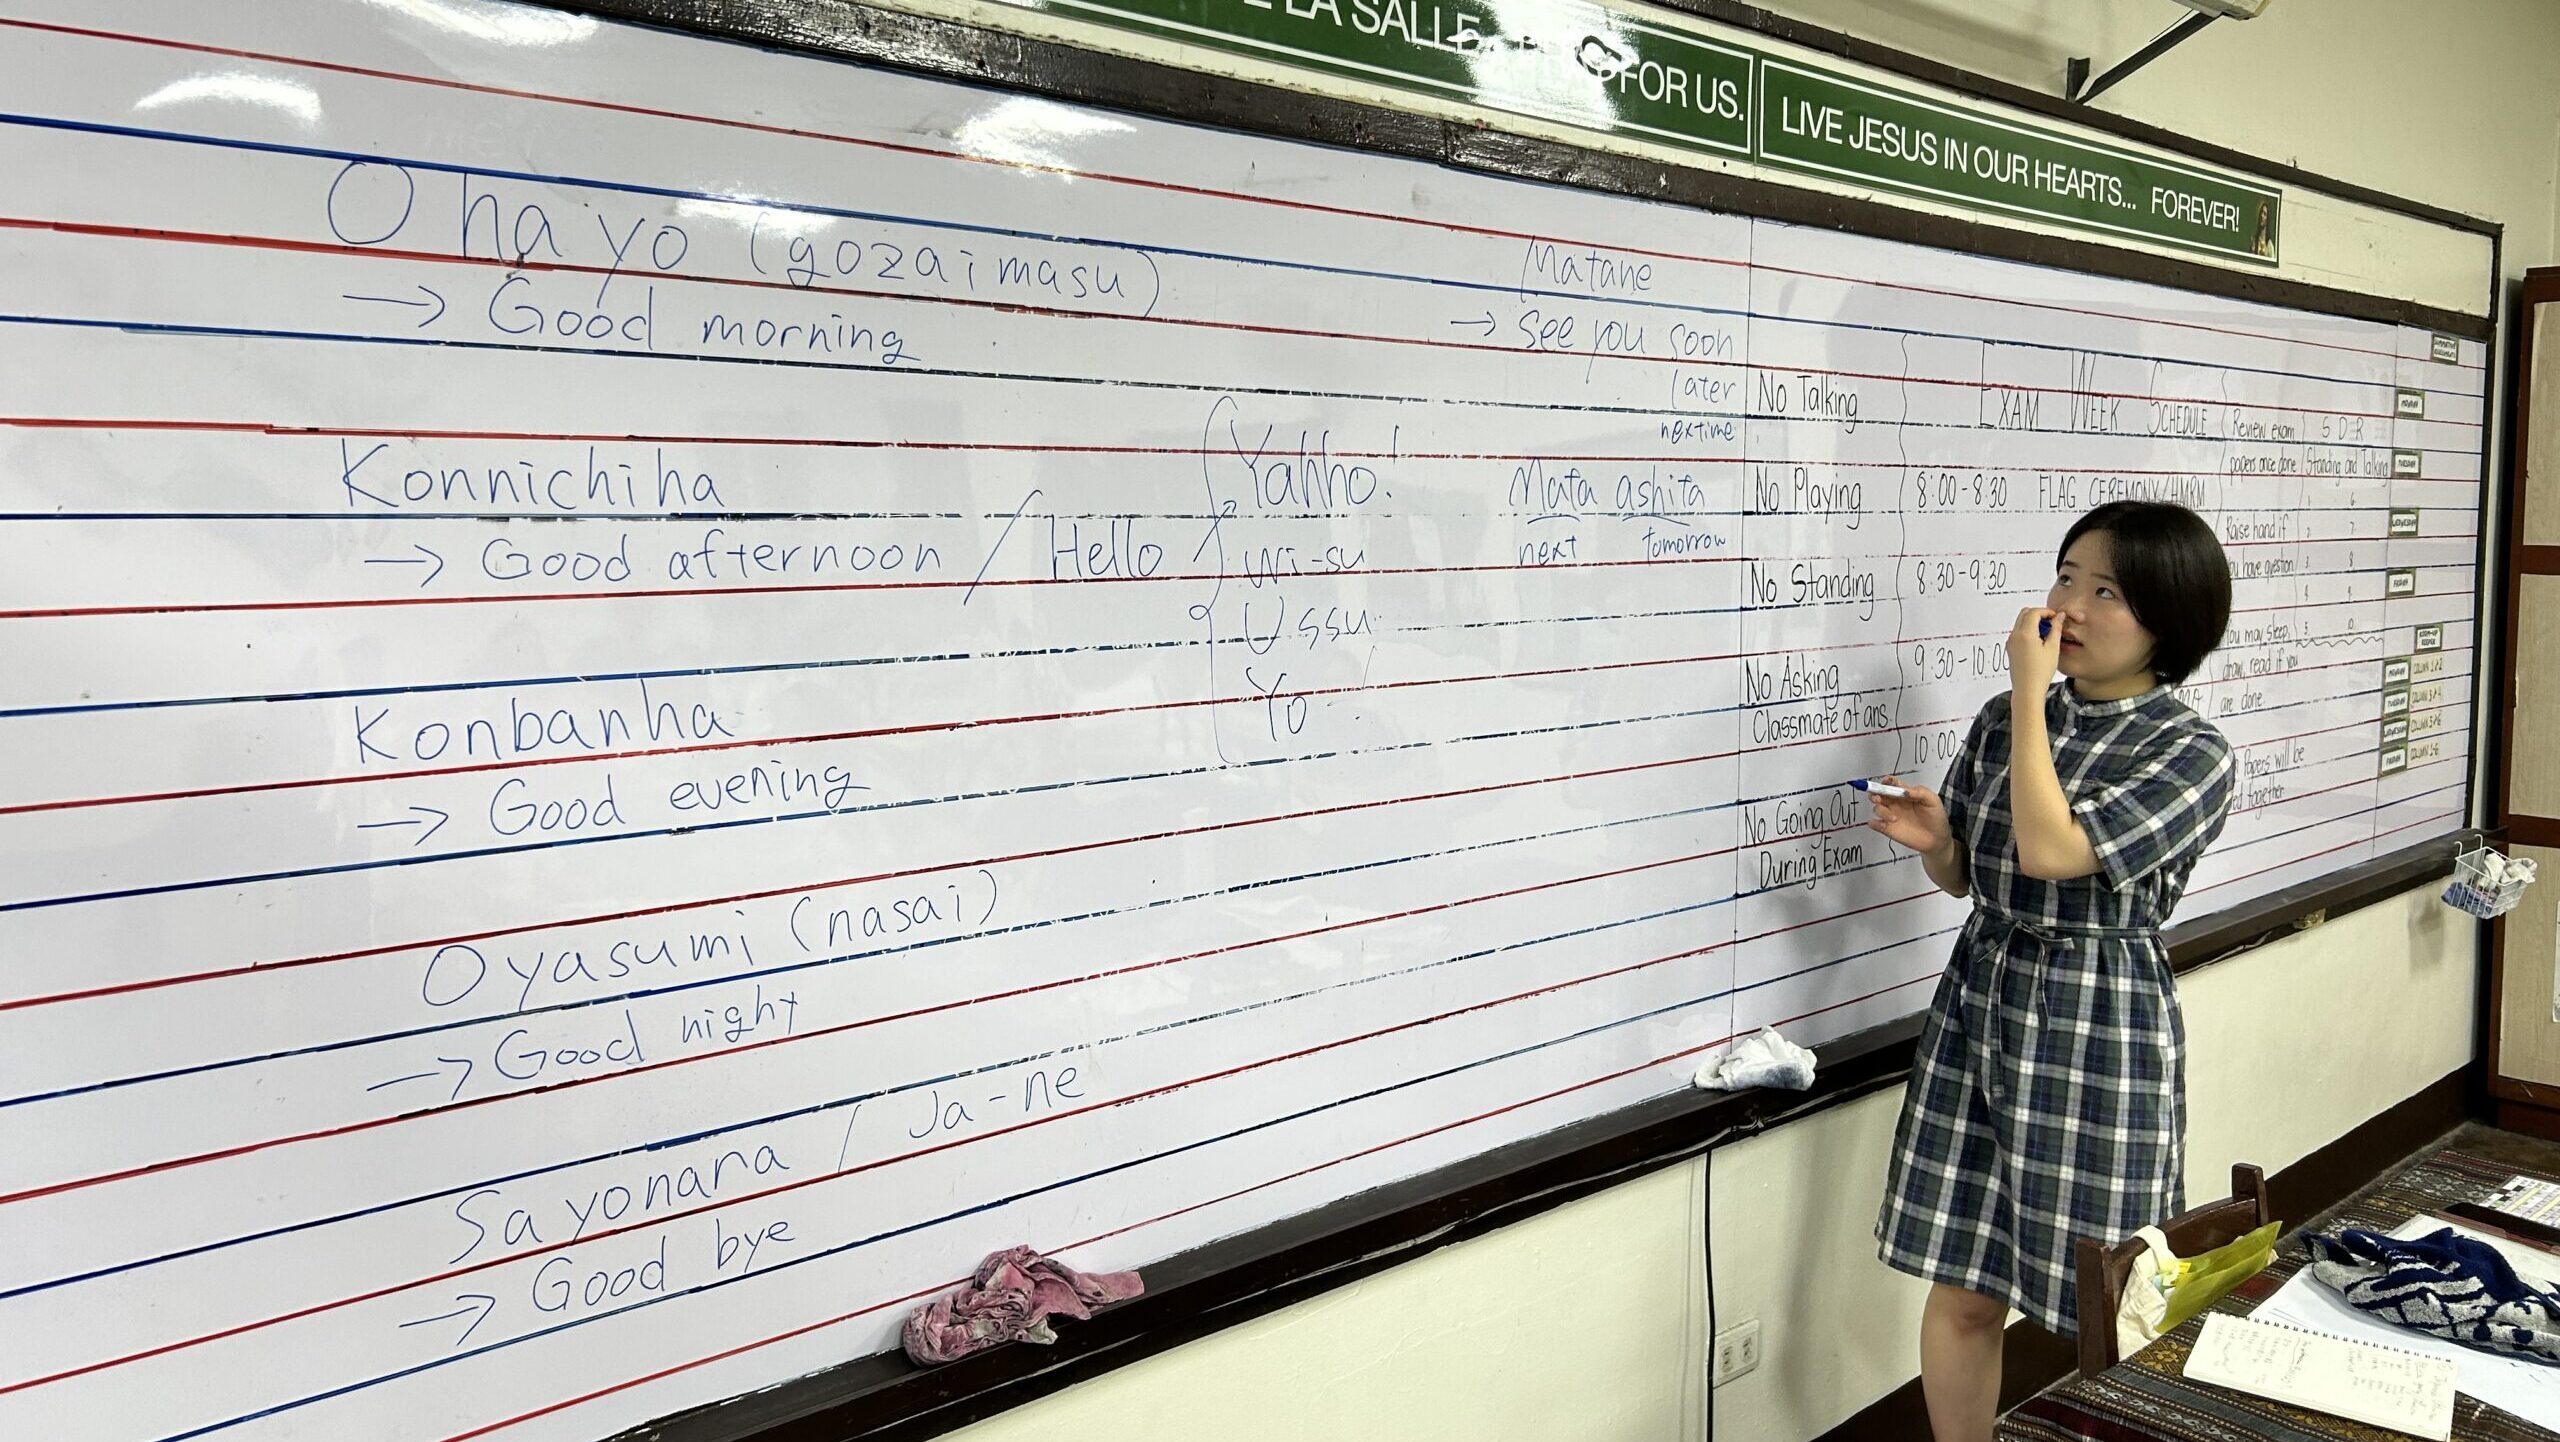 LA SALLE
FOR US.
LIVE JESUS IN OUR HEARTS... FOREVER!
Ohayo (gozaimasu)
→ Good morning
Konnichiha
→ Good afternoon / Hello
Konbanha
→ Good evening
Oyasumi (nasai)
→ Good night
Sayonara / Ja-ne
→ Good bye
Yahho!
Wi-su
Ussu
Yo!
Matane
→ see you soon
later
nextime
Mata ashita
next tomorrow
No Talking
No Playing
No Standing
No Asking
Classmate of ans
No Going Out
During Exam
EXAM WEEK SCHEDULE
8:00-8:30 FLAG CEREMONY/HMRM
8:30-9:30
9:30-10:00
10:00
Review exam
papers once done
Raise hand if
you have question
You may sleep,
draw, read if you
are done
Papers will be
together
S D R
Standing and Talking
1 6
2 7
3 8
4 9
5 10
MONDAY
TUESDAY
WEDNESDAY
FRIDAY